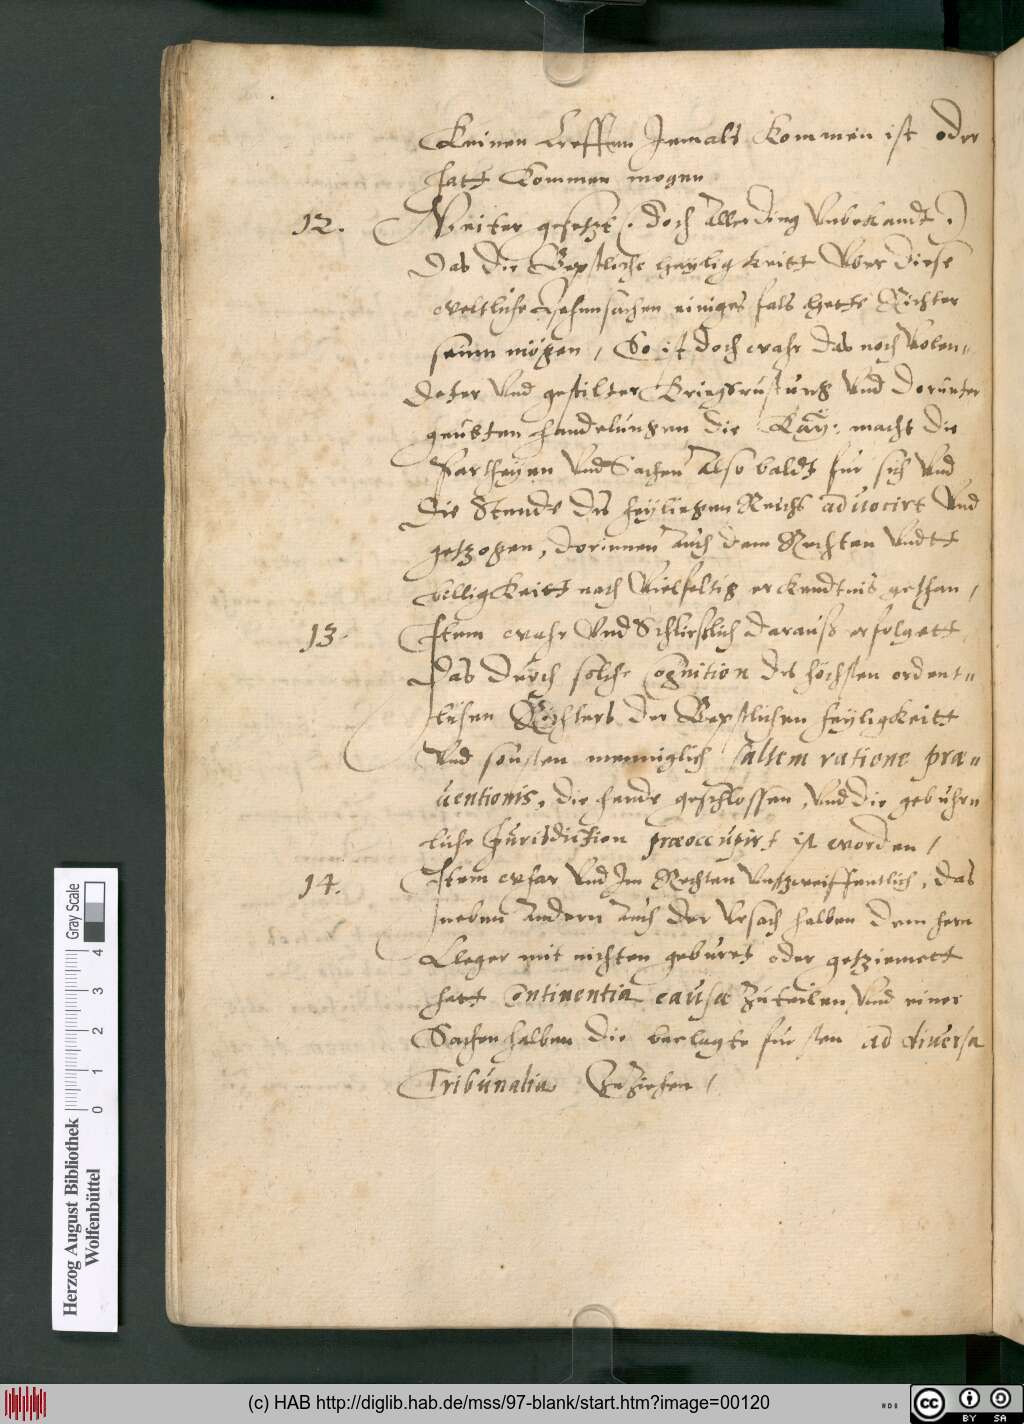 Keinen treffen Jemals kommen ist oder
hatt kommen mogen
12. Weiter gesetzt (: doch Allerding Unbekandt :)
Das die Bepstliche heyligkeitt Uber diese
weltliche Lehensachen einiges fals hette Richter
seinn mögen / So ist doch wahr das noch Volen„
deter Und gestilter Kriegsrustung Und dorunter
geubten handelungen die Kay: macht die
Partheyen Und Sachen Also baldt fur sich Und
die Stende des heyliegen Reichs aduocirt Und
getzogen, dorinnen Auch dem Rechten Undtt
billigkeitt nach Vielfeltig erkendtnis gethan /
13. Item wahr Und Schließlich darauß erfolgett
Das durch solche Cognition des höchsten ordent„
lichen Richters der Bepstlichen heyligkeitt
Und sonsten menniglich saltem ratione præ„
uentionis, die hende geschlossen, Und die geburen
liche Jurisdiction præoccupirt ist worden /
14. Item whar Und Im Rechten Unzweiffentlich, das
neben Andern Auch der Ursach halben dem hern
Cleger mit nichten geburet oder getziemett
hatt Continentia causæ zuteilen Und einer
Sachen halben die beclagte fursten ad diuersa
Tribunalia Zuziehen /
Herzog August Bibliothek
Wolfenbüttel
0 1 2 3 4
Gray Scale
(c) HAB http://diglib.hab.de/mss/97-blank/start.htm?image=00120
cc BY SA